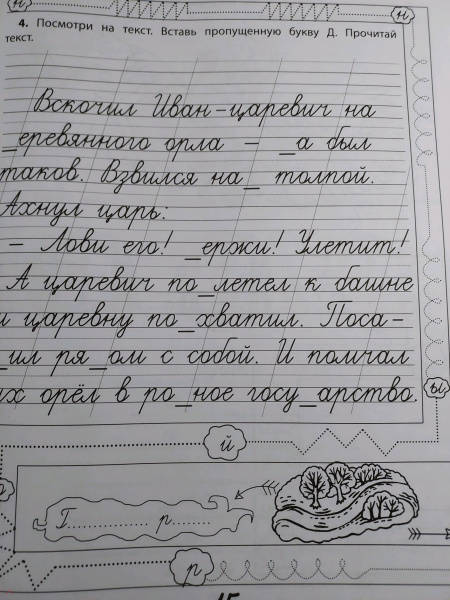 н
н
4. Посмотри на текст. Вставь пропущенную букву Д. Прочитай
текст.
Вскочил Иван-царевич на
_еревянного орла – _а был
таков. Взвился на_ толпой.
Ахнул царь:
– Лови его! _ержи! Улетит!
А царевич по_летел к башне
и царевну по_хватил. Поса-
_ил ря_ом с собой. И помчал
их орёл в ро_ное госу_арство.
ы
й
Г........... р........
р
15